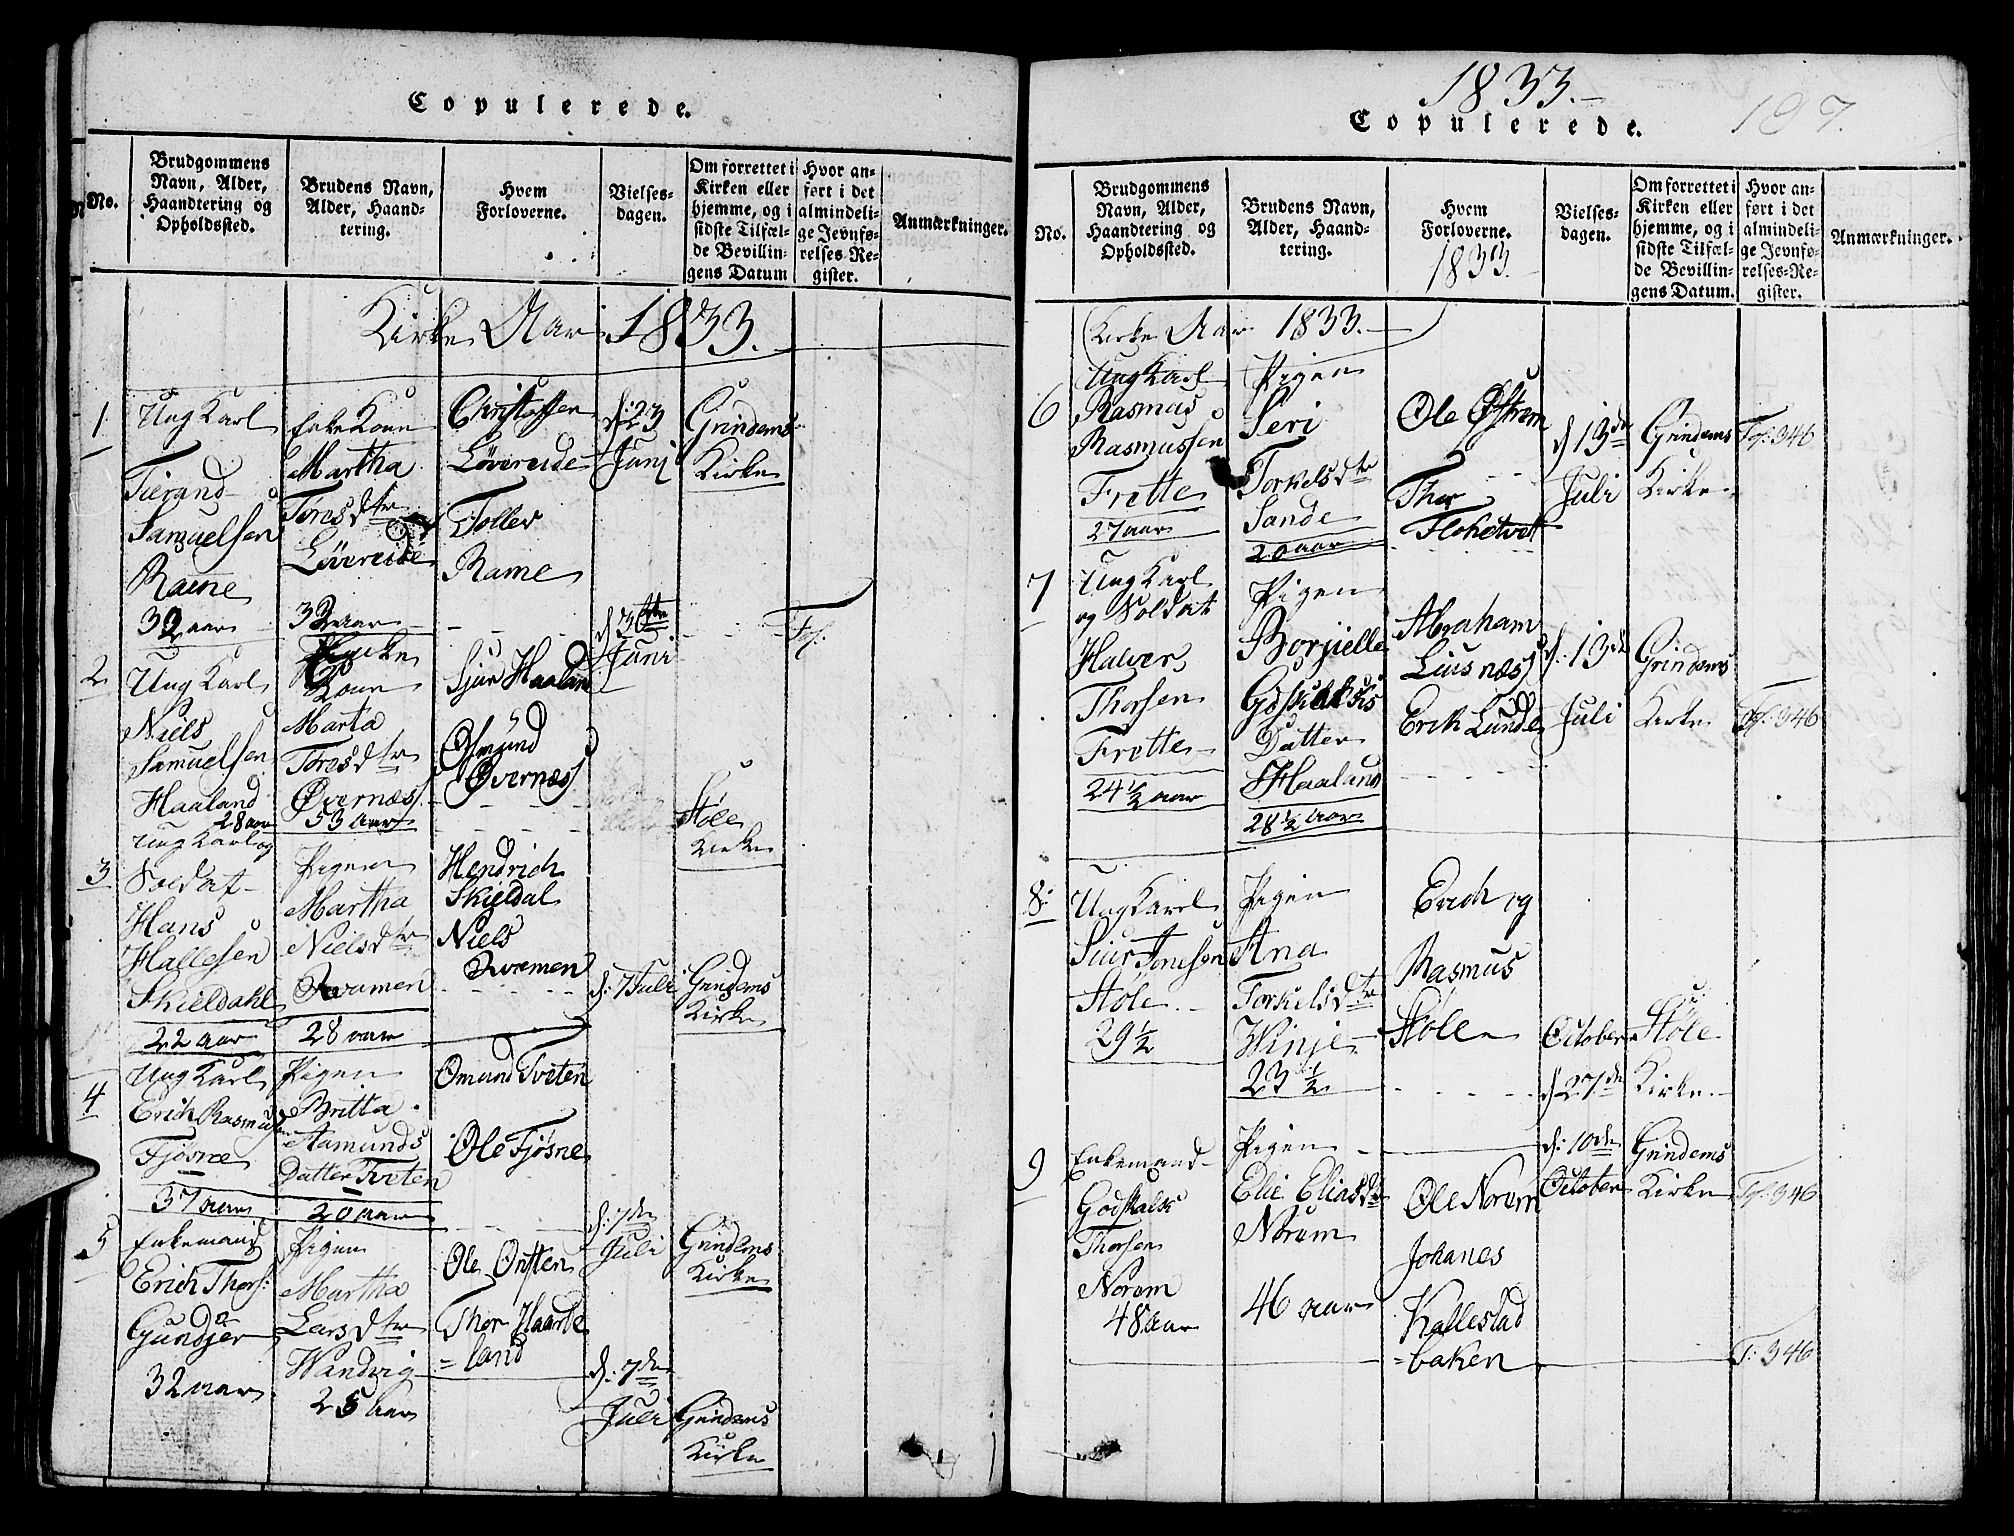 Copulerede.
No.
Brudgommens Navn, Alder, Haandtering og Opholdssted.
Brudens Navn, Alder, Haandtering.
Hvem Forloverne.
Vielsesdagen.
Om forrettet i Kirken eller hjemme, og i sidste Tilfælde Bevillingens Datum
Hvor anført i det almindelige Jevnførelses-Register.
Anmærkninger.
Kirke Aar 1833.
1.
Ung Karl
Tierand
Samuelsen
Rame
32 aar
Enke Kone
Martha
Tons dtr
Lövereide
32 aar
Christoffen
Løvereide
Tollev
Rame
d: 23
Juni
Grindems
Kirke
2
Ung Karl
Niels
Samuelsen
Haaland
28 aar
Enke
Kone
Marta
Tores dtr
Øvernæs
53 Aar
Sjur Haaland
Osmund
Øvernæs
d 30te
Juni
Støle
Kirke
Fol.
3
Ung Karl og
Soldat
Hans
Hallesen
Skieldahl
22 aar
Pigen
Martha
Niels dtr
Qvamen
28 aar
Hendrich
Skieldal
Niels
Kvamen
d: 7 Juli
Grindems
Kirke
4
Ung Karl
Erich Rasmusen
Fjøsne
37 aar
Pigen
Britta
Aamunds
Datter Tveten
20 aar
Omund Tveten
Ole Fjøsne
d: 7de
Juli
Grindems
Kirke
5
Enkemand
Erich Thors:
Gundjer
32 aar
Pigen
Martha
Lars dtr
Wandvig
25 aar
Ole Østten
Thor Haarde
=land
d: 7de
Juli
Grindems
Kirke
1833.
Copulerede.
197.
No.
Brudgommens Navn, Alder, Haandtering og Opholdssted.
Brudens Navn, Alder, Haandtering.
Hvem Forloverne.
1833.
Vielsesdagen.
Om forrettet i Kirken eller hjemme, og i sidste Tilfælde Bevillingens Datum.
Hvor anført i det almindelige Jevnførelses-Register.
Anmærkninger.
Kirke Aar 1833.
6
Ung Karl
Rasmus
Rasmussen
Frette
27 aar
Pigen
Seri
Torkels dtr
Sande
20 aar
Ole Østrem
Thor
Flohetvet
d 13de
Juli
Grindems
Kirke
Fol. 346
7
Ung Karl
og Soldat
Halver
Thorsen
Frette
24 ½ aar
Pigen
Borjielle
Godskalks
Datter
Haaland
28 ½ Aar
Abraham
Liusnæs
Erik Lunde
d: 13de
Juli
Grindems
Kirke
Fol. 346
8
Ung Karl
Siur Jonesen
Støle
29 ½
Pigen
Ana
Torkels dtr
Winje
23 ½
Erich og
Rasmus
Støle
October
d 27de
Støle
Kirke
9
Enkemand
Godskalk
Thorsen
Norum
48 aar
Pigen
Elie Elias dtr
Norum
46 aar
Ole Norum
Johanes
Kallestad
=baken
d: 10de
October
Grindems
Kirke
Fol. 346
F: 346